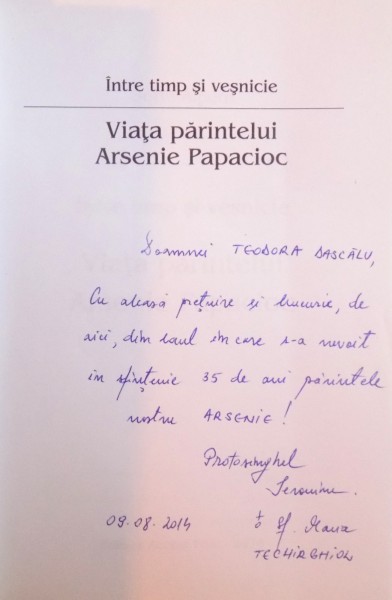 Între timp şi veşnicie
Viaţa părintelui
Arsenie Papacioc
Doamnei TEODORA DASCĂLU,
Cu aleasă preţuire si bucurie, de
aici, din locul în care s-a nevoit
în sfinţenie 35 de ani părintele
nostru ARSENIE!
Protosinghel
Ieronim.
09.08.2014 Sf. Maria
TECHIRGHIOL